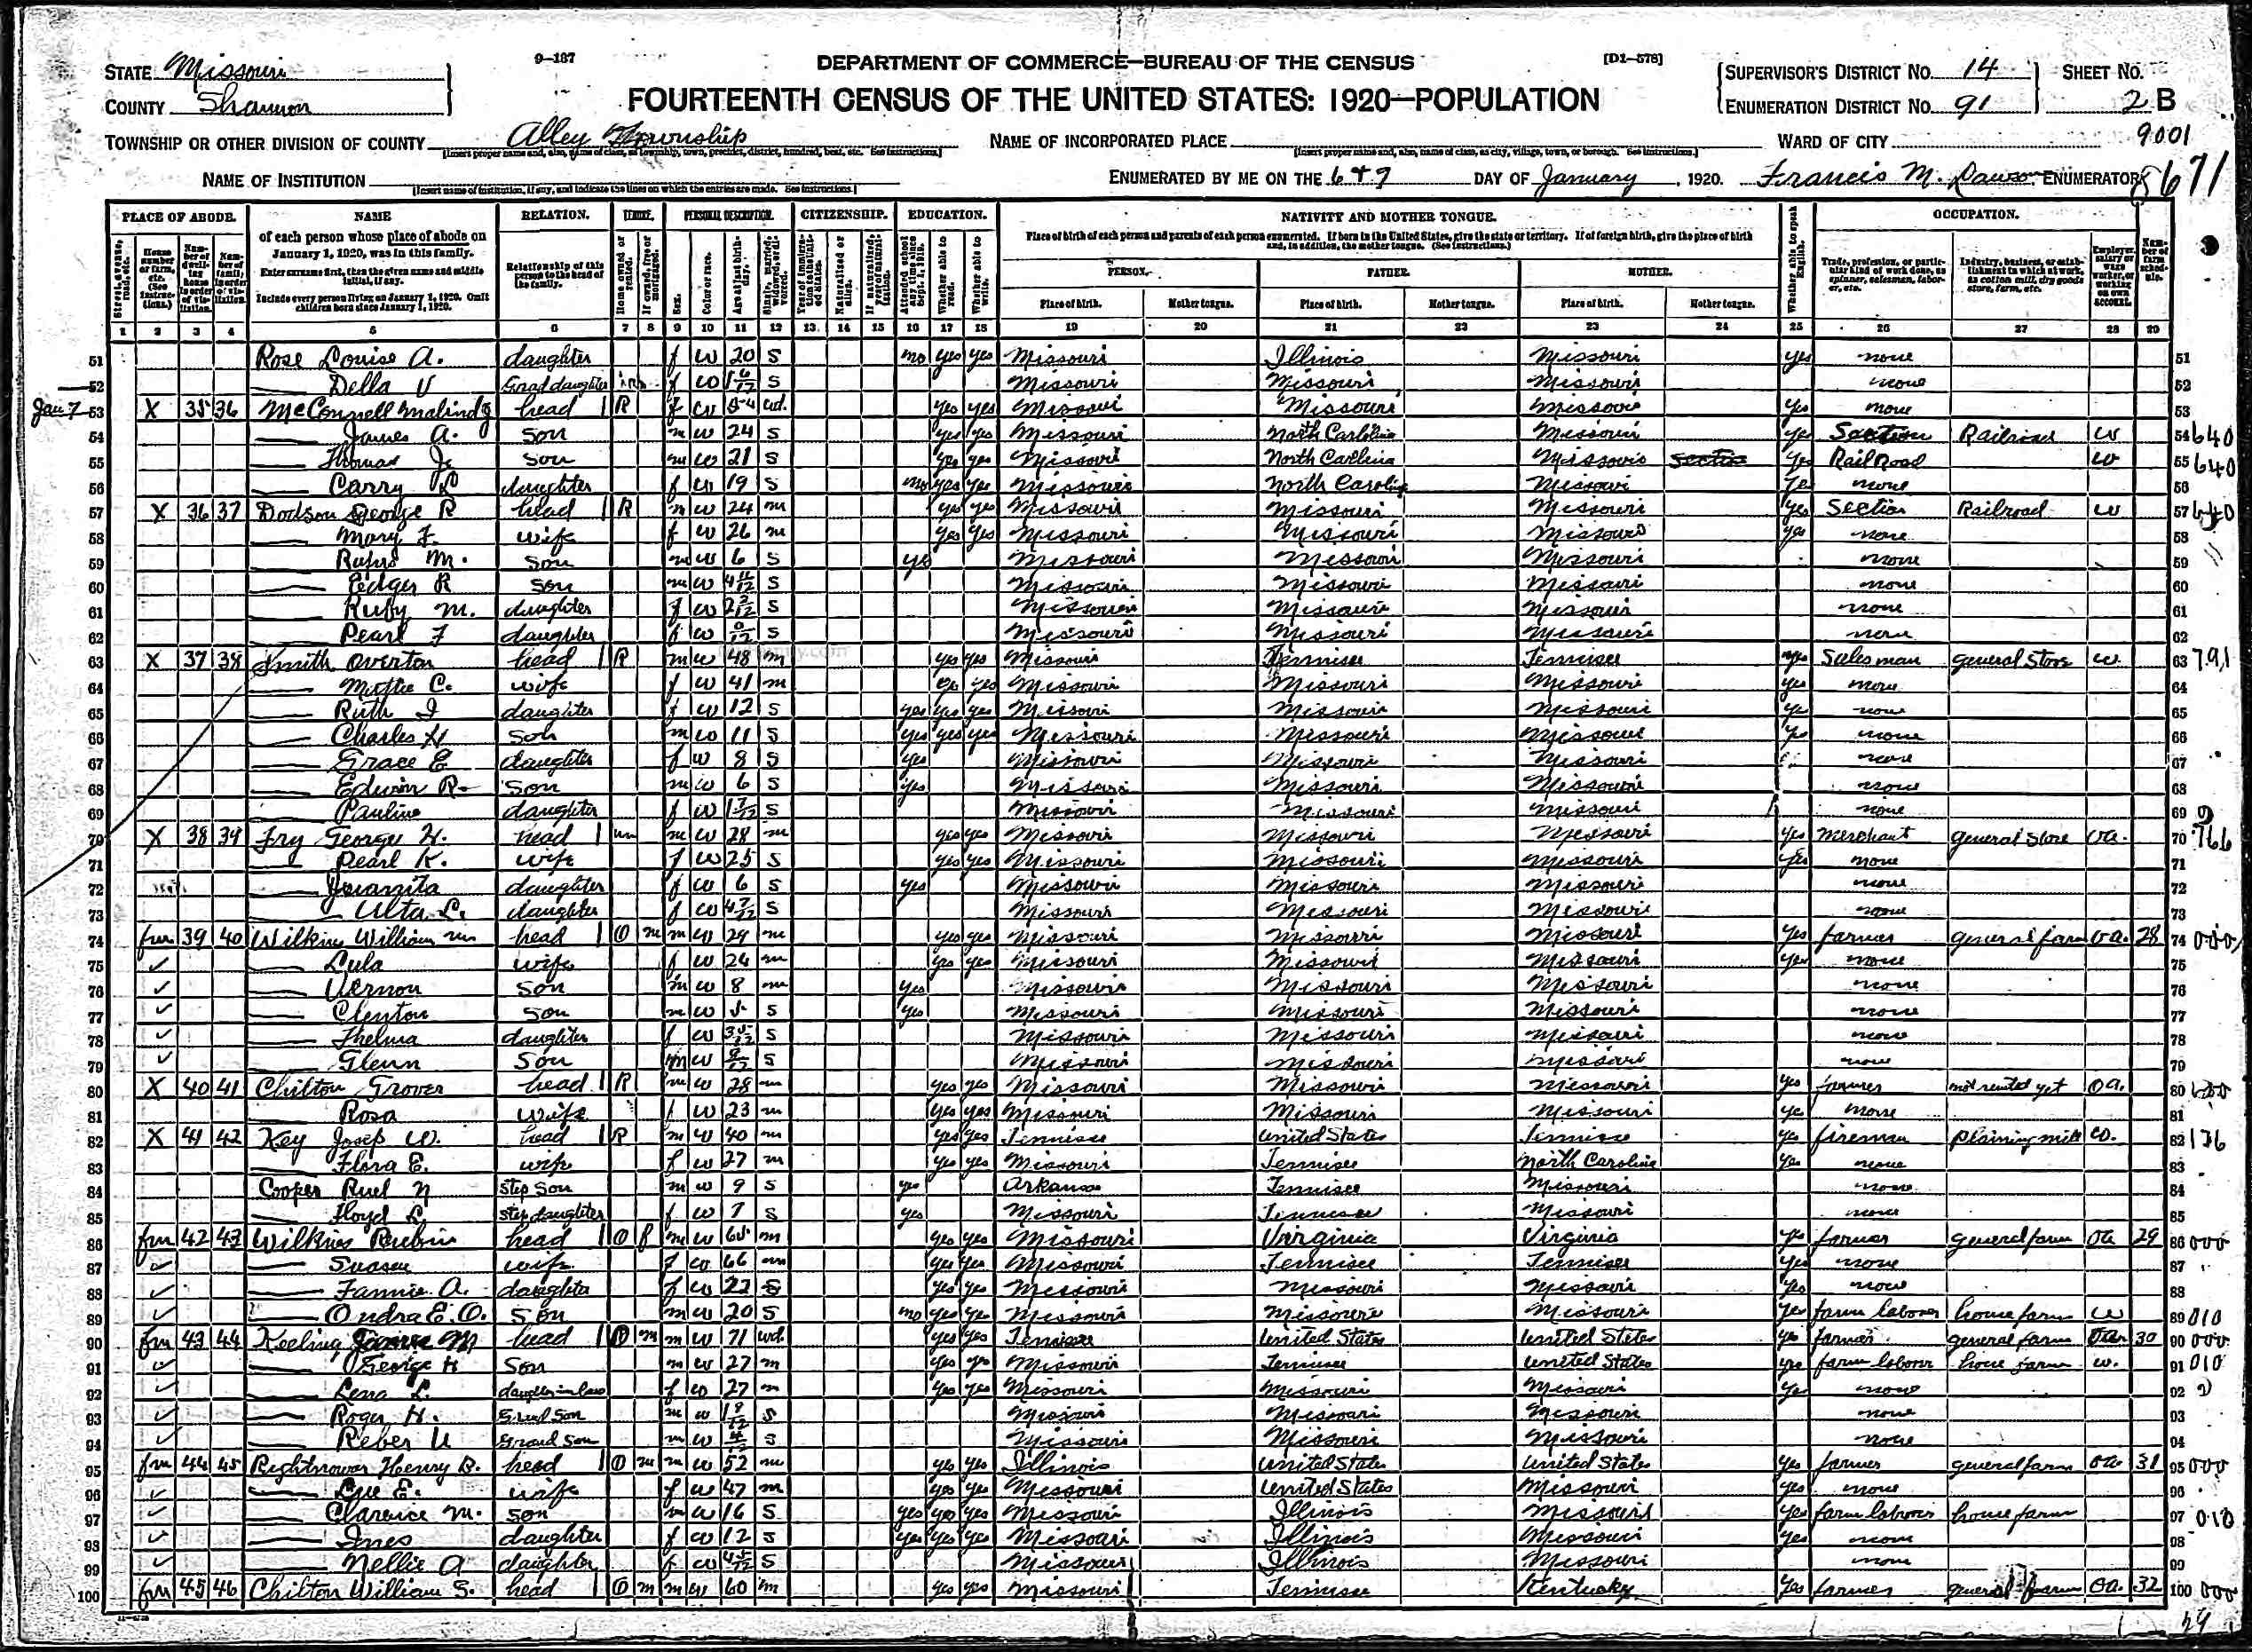 9-187
DEPARTMENT OF COMMERCE—BUREAU OF THE CENSUS
[D1-578]
STATE Missouri
COUNTY Shannon
FOURTEENTH CENSUS OF THE UNITED STATES: 1920—POPULATION
SUPERVISOR'S DISTRICT NO. 14
ENUMERATION DISTRICT NO. 91
SHEET NO.
2 B
TOWNSHIP OR OTHER DIVISION OF COUNTY Alley Township
NAME OF INCORPORATED PLACE
WARD OF CITY
9001
NAME OF INSTITUTION
ENUMERATED BY ME ON THE 6 + 7 DAY OF January, 1920. Francis M. Dawson ENUMERATOR
8671
PLACE OF ABODE. NAME RELATION. TENURE. PERSONAL DESCRIPTION. CITIZENSHIP. EDUCATION. NATIVITY AND MOTHER TONGUE. OCCUPATION.
of each person whose place of abode on January 1, 1920, was in this family.
Enter surname first, then the given name and middle initial, if any.
Include every person living on January 1, 1920. Omit children born since January 1, 1920.
Relationship of this person to the head of the family.
Place of birth of each person and parents of each person enumerated. If born in the United States, give the state or territory. If of foreign birth, give the place of birth and, in addition, the mother tongue. (See instructions.)
PERSON. FATHER. MOTHER.
Place of birth. Mother tongue. Place of birth. Mother tongue. Place of birth. Mother tongue.
1 2 3 4 5 6 7 8 9 10 11 12 13 14 15 16 17 18 19 20 21 22 23 24 25 26 27 28 29
51 Rose Louise A. daughter f W 20 S no yes yes Missouri Illinois Missouri yes none 51
52 Della V Grand daughter f W S Missouri Missouri Missouri none 52
Jan 7 53 X 35 36 McConnell head 1 R f W 54 wd. yes yes Missouri Missouri Missouri yes none 53
54 James A. son m W 24 S yes yes Missouri North Carolina Missouri yes Section Railroad W 54 640
55 Thomas J. son m W 21 S yes yes Missouri North Carolina Missouri yes Rail Road W 55 640
56 Carry daughter f W 19 S no yes yes Missouri North Carolina Missouri yes none 56
57 X 36 37 Dodson George R head 1 R m W 24 m yes yes Missouri Missouri Missouri yes Section Railroad W 57 640
58 Mary F. wife f W 26 m yes yes Missouri Missouri Missouri yes none 58
59 Rufus M. son m W 6 S yes Missouri Missouri Missouri none 59
60 Ledger R son m W 4 11/12 S Missouri Missouri Missouri none 60
61 Ruby M. daughter f W S Missouri Missouri Missouri none 61
62 Pearl F daughter f W 0/12 S Missouri Missouri Missouri none 62
63 X 37 38 Smith Overton head 1 R m W 48 m yes yes Missouri Tennisee Tennisee yes Salesman general Store W. 63 791
64 C. wife f W 41 m yes Missouri Missouri Missouri yes none 64
65 Ruth I daughter f W 12 S yes yes yes Missouri Missouri Missouri yes none 65
66 Charles H son m W 11 S yes yes yes Missouri Missouri Missouri yes none 66
67 Grace E daughter f W 8 S yes Missouri Missouri Missouri none 67
68 Edwin R. Son m W 6 S yes Missouri Missouri Missouri none 68
69 Pauline daughter f W 1 7/12 S Missouri Missouri Missouri none 69
70 X 38 39 Fry George H. head 1 un m W 28 m yes yes Missouri Missouri Missouri yes merchant general Store oa. 70 766
71 Pearl K. wife f W 25 S yes yes Missouri Missouri Missouri yes none 71
72 Juanita daughter f W 6 S yes Missouri Missouri Missouri none 72
73 Ulta L. daughter f W 4 7/12 S Missouri Missouri Missouri none 73
74 fm 39 40 Wilkins William m head 1 O m m W 29 m yes yes Missouri Missouri Missouri yes farmer general farm oa. 28 74 000
75 Lula wife f W 24 m yes yes Missouri Missouri Missouri yes none 75
76 Vernon son m W 8 m yes Missouri Missouri Missouri none 76
77 Clenton son m W 5 S yes Missouri Missouri Missouri none 77
78 Thelma daughter f W 3 5/12 S Missouri Missouri Missouri none 78
79 Glenn Son m W S Missouri Missouri Missouri none 79
80 X 40 41 Chilton Grover head 1 R m W 28 m yes yes Missouri Missouri Missouri yes farmer not rented yet oa. 80
81 Rosa wife f W 23 m yes yes Missouri Missouri Missouri yes none 81
82 X 41 42 Key Josep W. head 1 R m W 40 m yes yes Tennisee United States Tennisee yes fireman plaining mill W. 82 176
83 Flora E. wife f W 27 m yes yes Missouri Tennisee North Carolina yes none 83
84 Cooper Ruel N Step Son m W 9 S yes Arkansa Tennisee Missouri none 84
85 Floyd L Step daughter f W 7 S yes Missouri Tennisee Missouri none 85
86 fm 42 43 Wilkins Rubin head 1 O f m W 65 m yes yes Missouri Virginia Virginia yes farmer general farm oa 29 86 000
87 Susan wife f W 66 m yes yes Missouri Tennisee Tennisee yes none 87
88 Fannie A. daughter f W 22 S yes yes Missouri Missouri Missouri yes none 88
89 Ondra E. O. Son m W 20 S no yes yes Missouri Missouri Missouri yes farm laborer home farm W 89 010
90 fm 43 44 Keeling James M head 1 O m m W 71 wd. yes yes Tennisee United States United States yes farmer general farm oa 30 90 000
91 George H Son m W 27 m yes yes Missouri Tennisee United States yes farm laborer home farm W. 91 010
92 Lena L. daughter in law f W 27 m yes yes Missouri Missouri Missouri yes none 92
93 Roger H. Grand Son m W S Missouri Missouri Missouri none 93
94 Reber U Grand Son m W S Missouri Missouri Missouri none 94
95 fm 44 45 Rightnower Henry B. head 1 O m m W 52 m yes yes Illinois United States United States yes farmer general farm oa 31 95 000
96 E. wife f W 47 m yes yes Missouri United States Missouri yes none 96
97 Clarence M. son m W 16 S yes yes yes Missouri Illinois Missouri yes farm laborer home farm 97 010
98 Ines daughter f W 12 S yes yes yes Missouri Illinois Missouri yes none 98
99 Nellie A daughter f W 4 5/12 S Missouri Illinois Missouri none 99
100 fm 45 46 Chilton William S. head 1 O m m W 60 m yes yes Missouri Tennisee Kentucky yes farmer general farm oa. 32 100 000